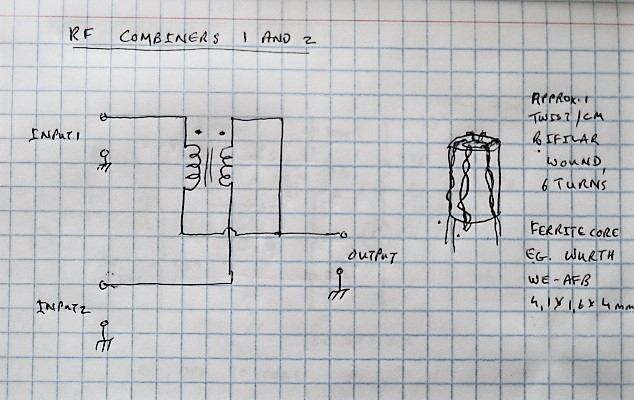 RF COMBINERS 1 AND 2
INPUT1
INPUT2
OUTPUT
APPROX. 1
TWIST/CM
BIFILAR
WOUND,
6 TURNS
FERRITE CORE
EG. WURTH
WE-AFB
4,1 X 1,6 X 4 mm